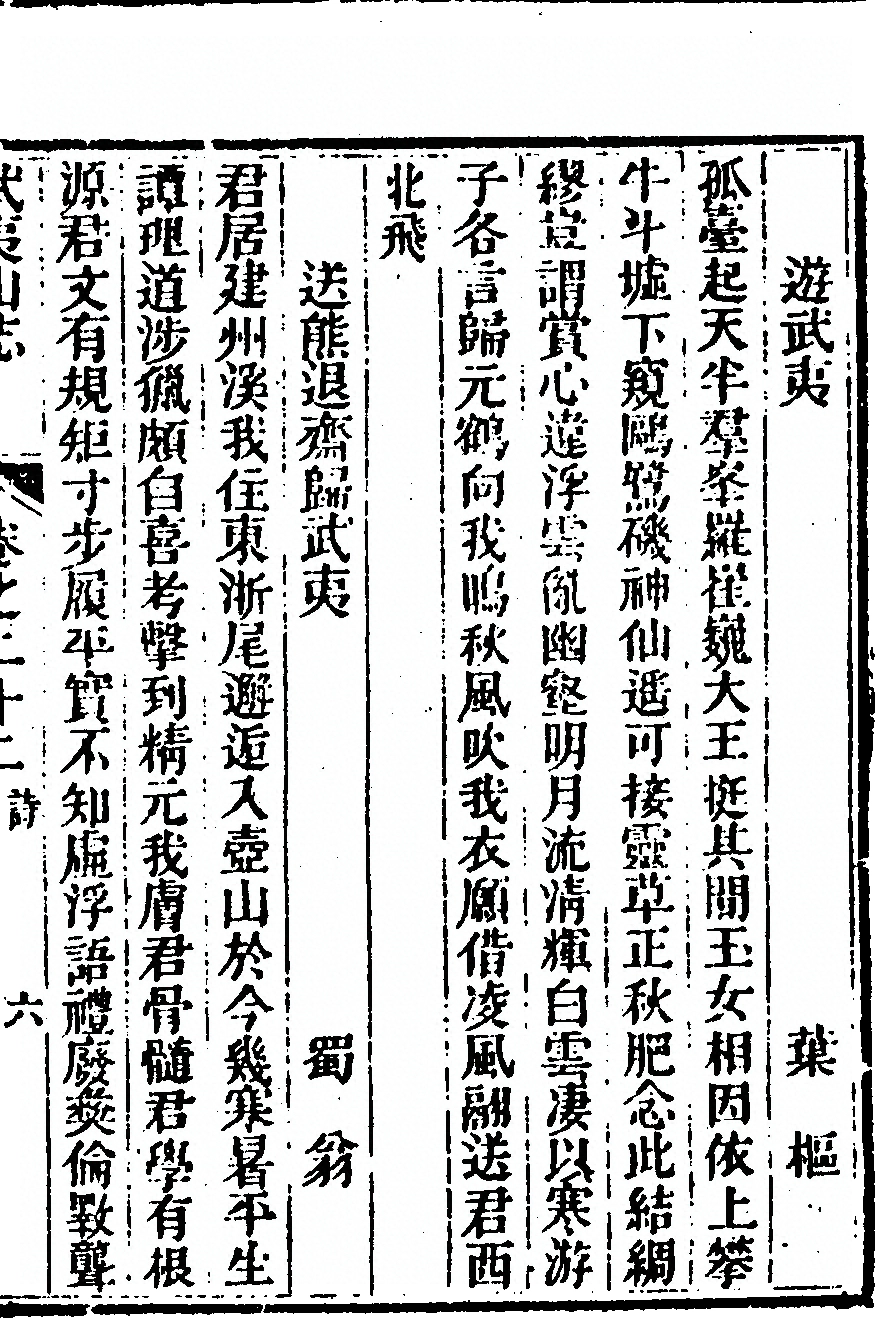 遊武夷 葉樞
孤臺起天半羣峯羅崔巍大王挺其間玉女相因依上攀
牛斗墟下窺鷗鷺磯神仙遥可接靈草正秋肥念此結綢
繆豈謂賞心違浮雲亂幽壑明月流清輝白雲凄以寒游
子各言歸元鶴向我鳴秋風吹我衣願借凌風翮送君西
北飛
送熊退齋歸武夷 蜀翁
君居建州溪我住東浙尾邂逅入壺山於今幾寒暑平生
譚理道涉獵頗自喜考擊到精元我膚君骨髓君學有根
源君文有規矩寸步履平實不知虛浮語禮廢彝倫斁聾
武夷山志 卷之二十二 詩 六